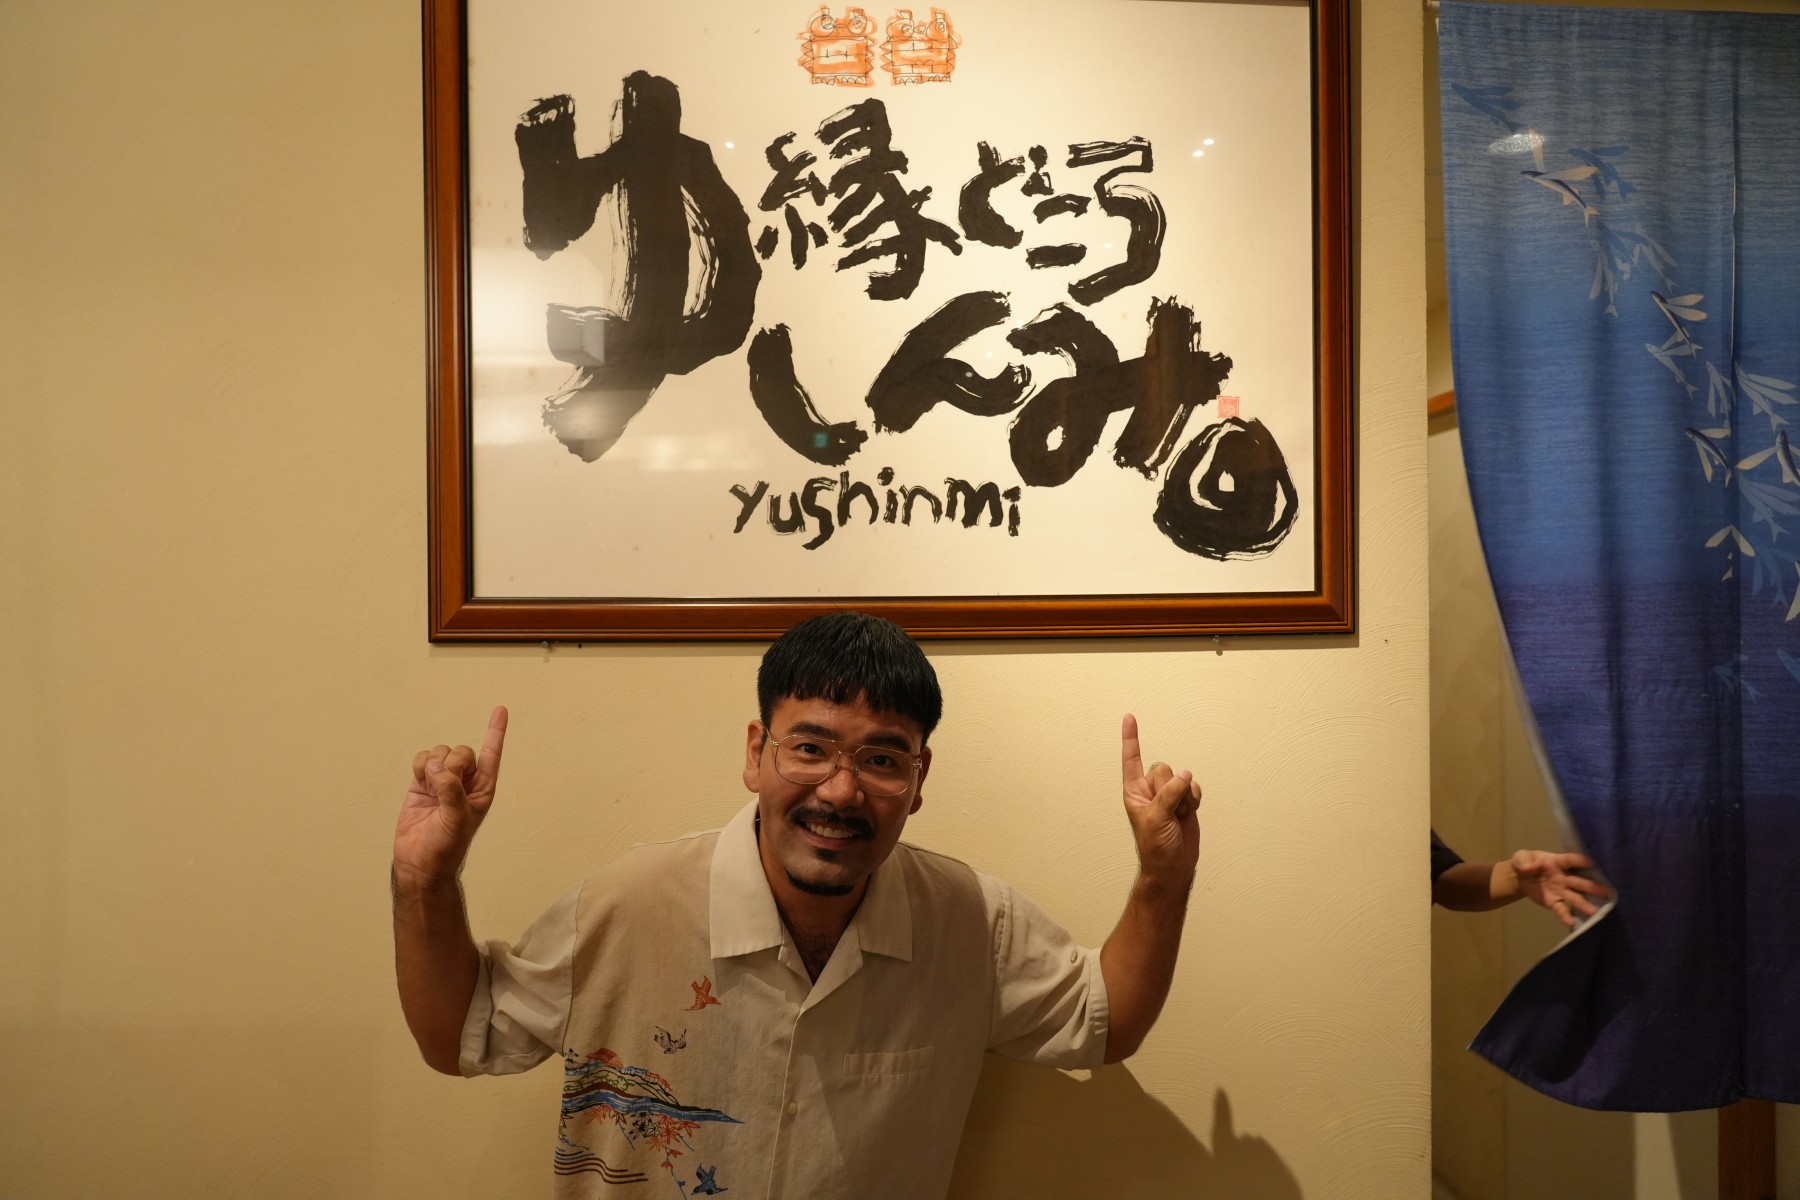 縁どころ
ゆしんみ
yushinmi